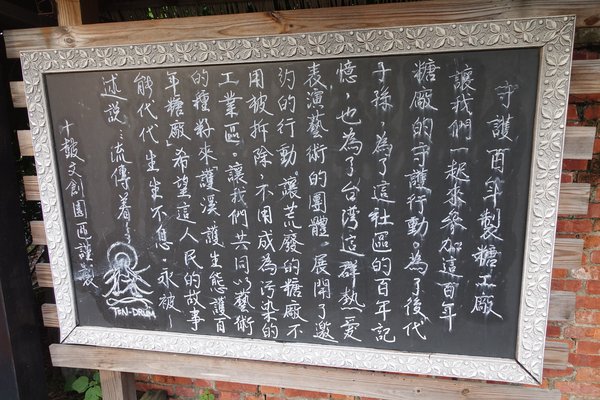 守護百年製糖工廠
讓我們一起來參加這百年
糖廠的守護行動。為了後代
子孫,為了這社區的百年記
憶,也為了台灣這群熱愛
表演藝術的團體。展開了邀
約的行動。讓荒廢的糖廠不
用被拆除,不用成為污染的
工業區。讓我們共同以藝術
的種籽來護溪護生態護百
年糖廠,希望這人民的故事
能代代生生不息,永被~
述說…流傳着了
十鼓文創園區謹製
TEN-DRUM